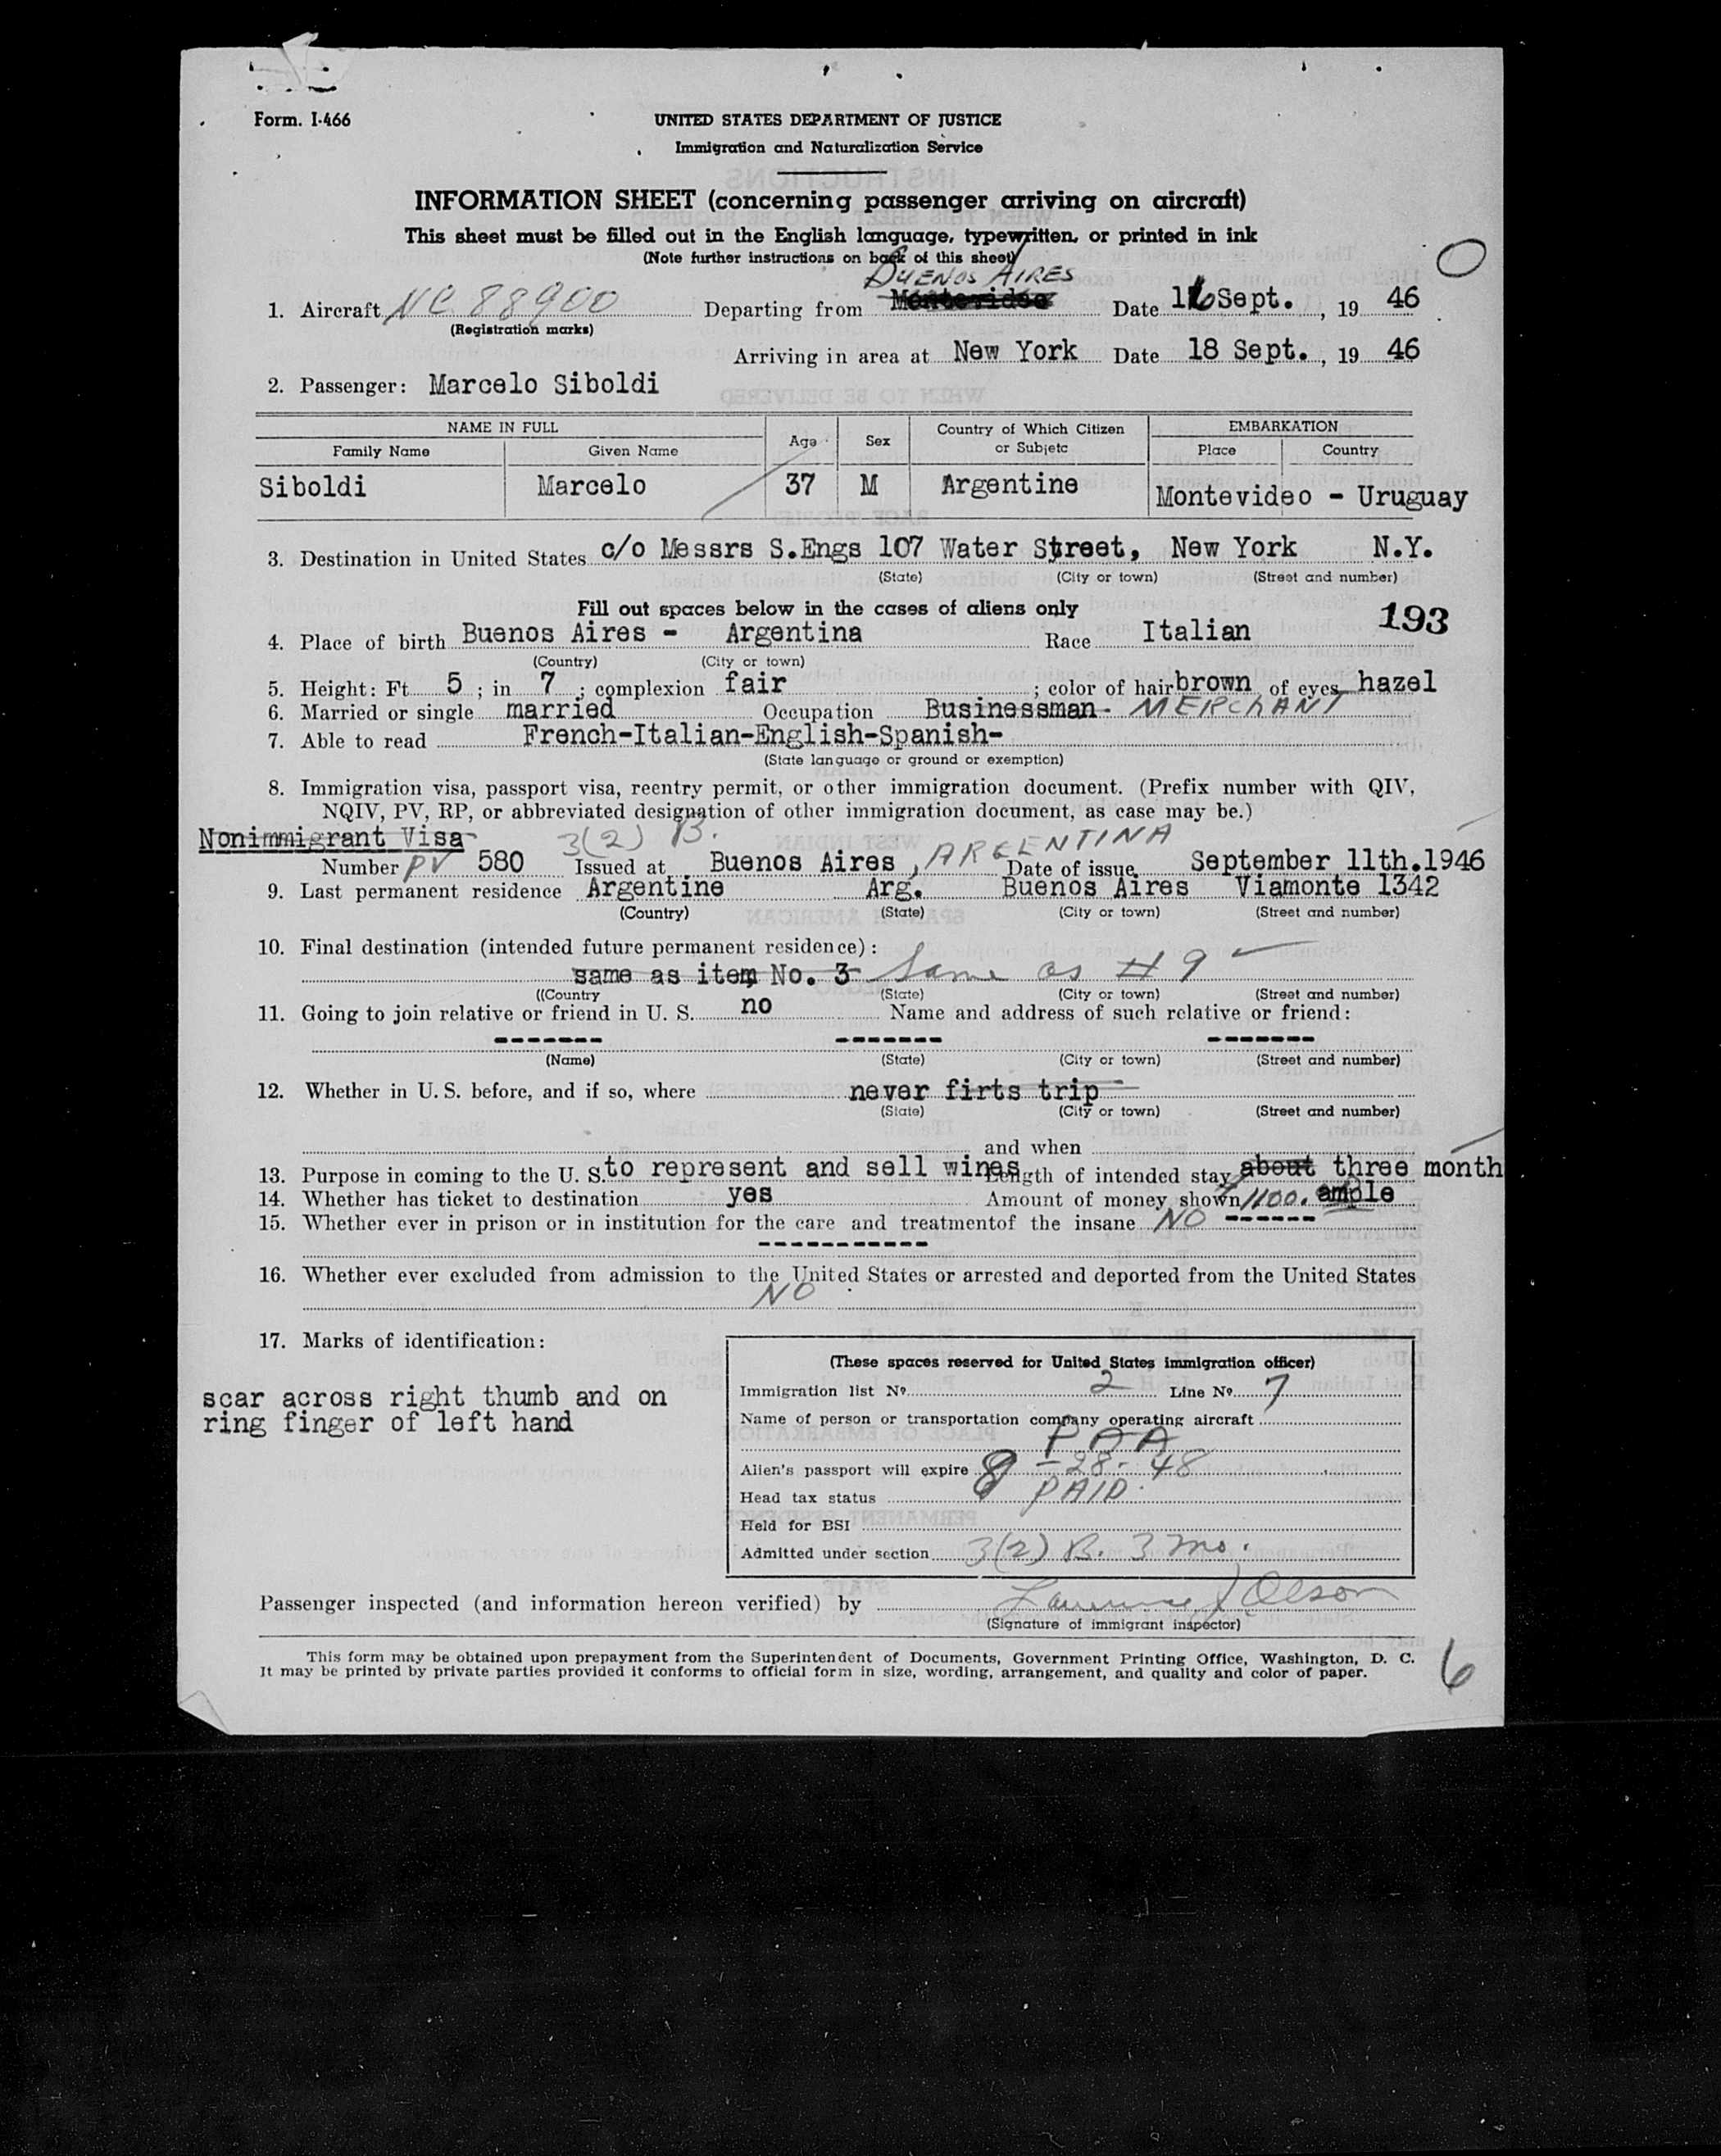 Form. I-466
UNITED STATES DEPARTMENT OF JUSTICE
Immigration and Naturalization Service
INFORMATION SHEET (concerning passenger arriving on aircraft)
This sheet must be filled out in the English language, typewritten, or printed in ink
(Note further instructions on back of this sheet)
BUENOS AIRES
1. Aircraft NC 88900 Departing from Montevideo Date 16 Sept., 19 46
(Registration marks)
Arriving in area at New York Date 18 Sept., 19 46
2. Passenger: Marcelo Siboldi
NAME IN FULL Age Sex Country of Which Citizen or Subjetc EMBARKATION
Family Name Given Name Place Country
Siboldi Marcelo 37 M Argentine Montevideo - Uruguay
3. Destination in United States c/o Messrs S.Engs 107 Water Street, New York N.Y.
(State) (City or town) (Street and number)
Fill out spaces below in the cases of aliens only 193
4. Place of birth Buenos Aires - Argentina Race Italian
(Country) (City or town)
5. Height: Ft 5 ; in 7 ; complexion fair ; color of hair brown of eyes hazel
6. Married or single married Occupation Businessman- MERCHANT
7. Able to read French-Italian-English-Spanish-
(State language or ground or exemption)
8. Immigration visa, passport visa, reentry permit, or other immigration document. (Prefix number with QIV,
NQIV, PV, RP, or abbreviated designation of other immigration document, as case may be.)
Nonimmigrant Visa 3(2) B.
Number PV 580 Issued at Buenos Aires, ARGENTINA Date of issue September 11th.1946
9. Last permanent residence Argentine Arg. Buenos Aires Viamonte 1342
(Country) (State) (City or town) (Street and number)
10. Final destination (intended future permanent residence):
same as item No. 3 Same as # 9
((Country (State) (City or town) (Street and number)
11. Going to join relative or friend in U. S. no Name and address of such relative or friend:
------- ------- -------
(Name) (State) (City or town) (Street and number)
12. Whether in U. S. before, and if so, where never firts trip
(State) (City or town) (Street and number)
and when
13. Purpose in coming to the U. S. to represent and sell wines Length of intended stay about three month
14. Whether has ticket to destination yes Amount of money shown 1100. ample
15. Whether ever in prison or in institution for the care and treatmentof the insane NO ------
-----------
16. Whether ever excluded from admission to the United States or arrested and deported from the United States
NO
17. Marks of identification:
scar across right thumb and on
ring finger of left hand
(These spaces reserved for United States immigration officer)
Immigration list Nº 2 Line Nº 7
Name of person or transportation company operating aircraft
PAA
Alien's passport will expire 8-28-48
Head tax status PAID
Held for BSI
Admitted under section 3(2) B. 3 mo.
Passenger inspected (and information hereon verified) by Lawrence J Olson
(Signature of immigrant inspector)
This form may be obtained upon prepayment from the Superintendent of Documents, Government Printing Office, Washington, D. C.
It may be printed by private parties provided it conforms to official form in size, wording, arrangement, and quality and color of paper.
6